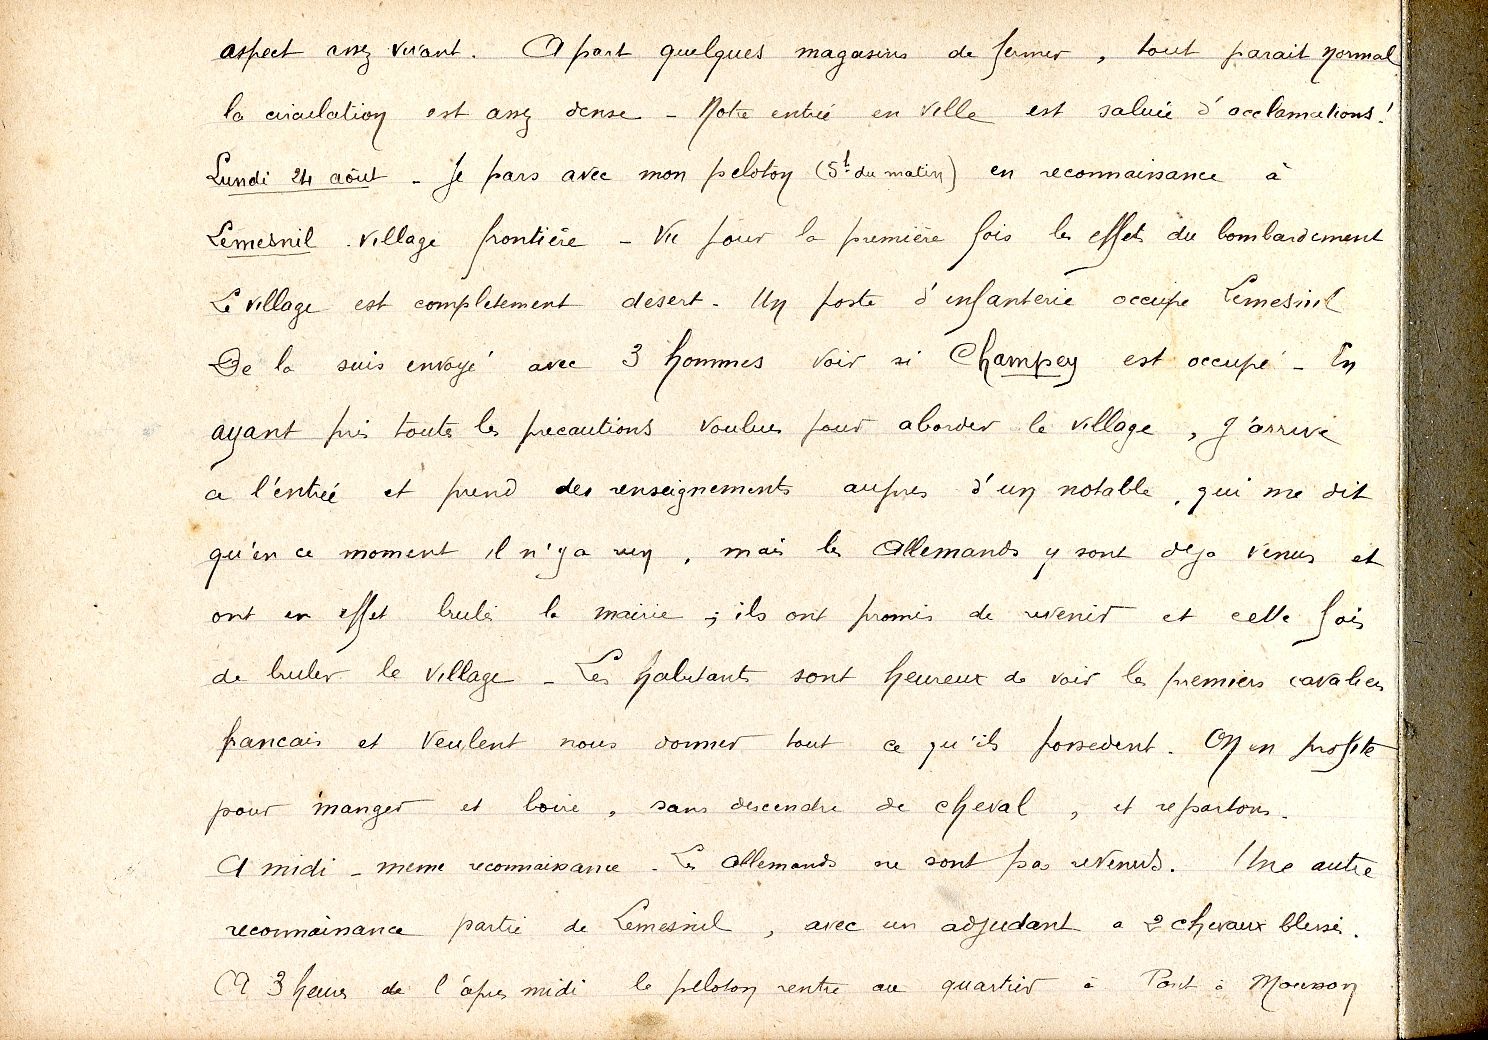 aspect assez vivant. A part quelques magasins de fermer, tout parait normal
la circulation est assez dense - Notre entrée en ville est saluée d'acclamations!
Lundi 24 aôut - Je pars avec mon peloton (5h du matin) en reconnaissance à
Lemesnil village frontière - Vu pour la première fois les effets du bombardement
Le village est completement desert - Un poste d'infanterie occupe Lemesnil
De la suis envoyé avec 3 hommes voir si Champey est occupé - En
ayant pris toutes les precautions voulues pour aborder le village, j'arrive
a l'entrée et prend des renseignements aupres d'un notable, qui me dit
qu'en ce moment il n'y a rien, mais les Allemands y sont deja venus et
ont en effet brulé la mairie ; ils ont promis de revenir et cette fois
de bruler le village - Les habitants sont heureux de voir les premiers cavaliers
francais et veulent nous donner tout ce qu'ils possedent. On en profite
pour manger et boire, sans descendre de cheval, et repartons.
A midi - meme reconnaissance - Les Allemands ne sont pas revenus. Une autre
reconnaissance partie de Lemesnil, avec un adjudant a 2 chevaux blessés.
A 3 heures de l'apres midi le peloton rentre au quartier à Pont à Mousson